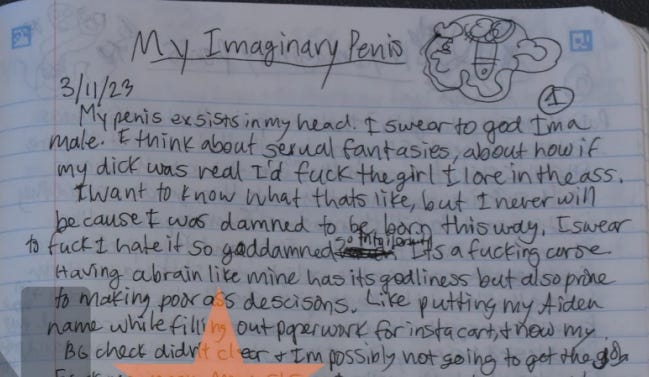 My Imaginary Penis
3/11/23
1
My penis exsists in my head. I swear to god I'm a
male. I think about sexual fantasies, about how if
my dick was real I'd fuck the girl I love in the ass.
I want to know what thats like, but I never will
because I was damned to be born this way. I swear
to fuck I hate it so goddamned Its a fucking curse.
Having a brain like mine has its godliness but also prone
to making poor ass descisons. Like putting my Aiden
name while filling out paperwork for instacart, & now my
BG check didn't clear & I'm possibly not going to get the job